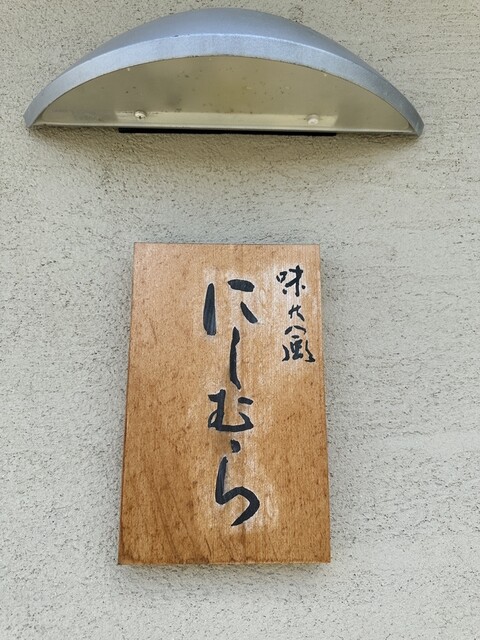 味の風
にしむら